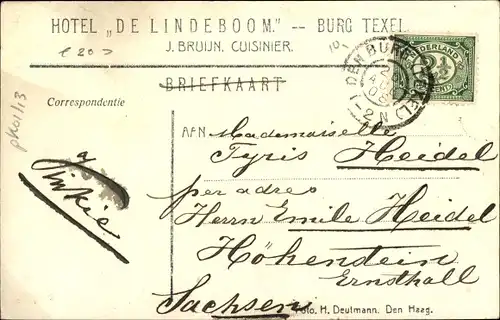 HOTEL „DE LINDEBOOM." -- BURG TEXEL
J. BRUIJN, CUISINIER.
£ 20
DEN BURG (TEXEL)
2 N
NEDERLAND
2½
CENT
BRIEFKAART
Correspondentie
pk01/13
AAN
Mademoiselle
Tyris Heidel
per adres
Herrn Emile Heidel
Höhenstein
Ernsthall
Sachsen
Foto. H. Deutmann. Den Haag.